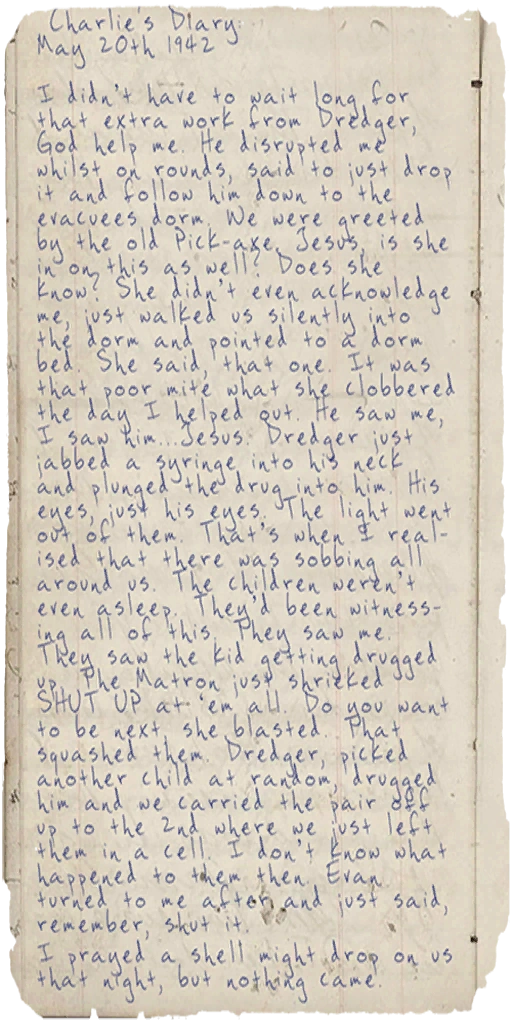 Charlie's Diary
May 20th 1942
I didn't have to wait long for
that extra work from Dredger,
God help me. He disrupted me
whilst on rounds, said to just drop
it and follow him down to the
evacuees dorm. We were greeted
by the old Pick-axe, Jesus, is she
in on this as well? Does she
know? She didn't even acknowledge
me, just walked us silently into
the dorm and pointed to a dorm
bed. She said, that one. It was
that poor mite what she clobbered
the day I helped out. He saw me,
I saw him...Jesus. Dredger just
jabbed a syringe into his neck
and plunged the drug into him. His
eyes, just his eyes. The light went
out of them. That's when I real-
ised that there was sobbing all
around us. The children weren't
even asleep. They'd been witness-
ing all of this. They saw me.
They saw the kid getting drugged
up. The Matron just shrieked
SHUT UP at 'em all. Do you want
to be next, she blasted. That
squashed them. Dredger, picked
another child at random, drugged
him and we carried the pair off
up to the 2nd where we just left
them in a cell. I don't know what
happened to them then. Evan
turned to me after and just said,
remember, shut it.
I prayed a shell might drop on us
that night, but nothing came.